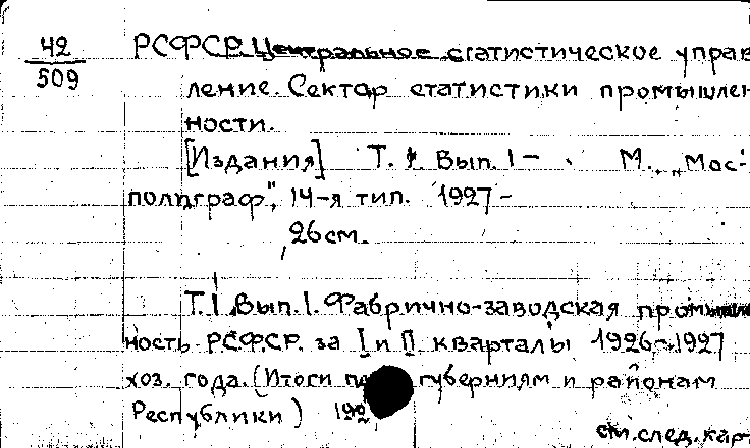 42
509
РСФСР. Центральное статистическое управ
ление. Сектор статистики промышлен
ности.
[Издания] Т. 1 Вып. 1 – . М., „Мос-
полиграф", 14-я тип. 1927 –
26 см.
Т. 1, Вып. 1. Фабрично-заводская
ность РСФСР. за I и II кварталы 1926-1927
хоз. года. (Итоги губерниям и районам
Республики) 192
см. след. кар